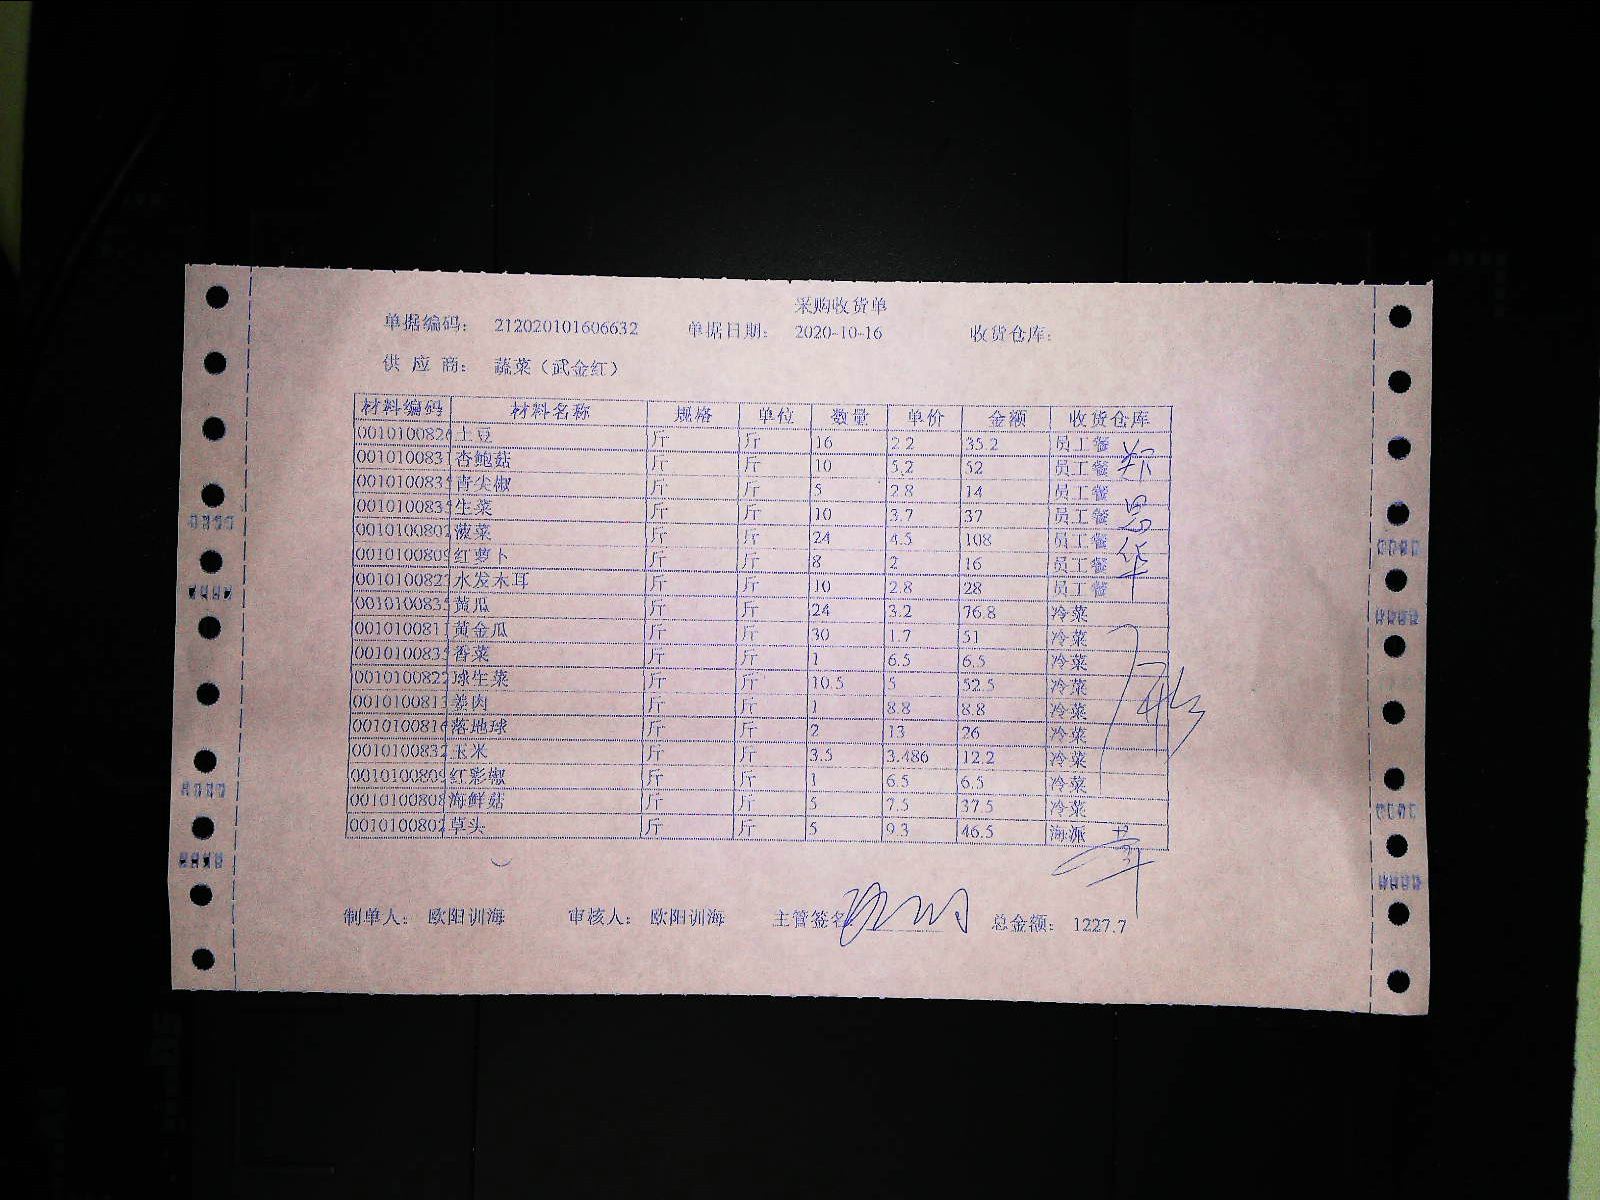 采购收货单
单据编码: 212020101606632 单据日期: 2020-10-16 收货仓库:
供 应 商: 蔬菜（武金红）
材料编码 材料名称 规格 单位 数量 单价 金额 收货仓库
001010082 土豆 斤 斤 16 2.2 35.2 员工餐
001010083 杏鲍菇 斤 斤 10 5.2 52 员工餐
001010083 青尖椒 斤 斤 5 2.8 14 员工餐
001010083 生菜 斤 斤 10 3.7 37 员工餐
001010080 菠菜 斤 斤 24 4.5 108 员工餐
001010080 红萝卜 斤 斤 8 2 16 员工餐
001010082 水发木耳 斤 斤 10 2.8 28 员工餐
001010083 黄瓜 斤 斤 24 3.2 76.8 冷菜
001010081 黄金瓜 斤 斤 30 1.7 51 冷菜
001010083 香菜 斤 斤 1 6.5 6.5 冷菜
001010082 球生菜 斤 斤 10.5 5 52.5 冷菜
001010081 姜肉 斤 斤 1 8.8 8.8 冷菜
001010081 落地球 斤 斤 2 13 26 冷菜
001010083 玉米 斤 斤 3.5 3.486 12.2 冷菜
001010080 红彩椒 斤 斤 1 6.5 6.5 冷菜
001010080 海鲜菇 斤 斤 5 7.5 37.5 冷菜
001010080 草头 斤 斤 5 9.3 46.5 海派
制单人: 欧阳训海 审核人: 欧阳训海 主管签名: 总金额: 1227.7